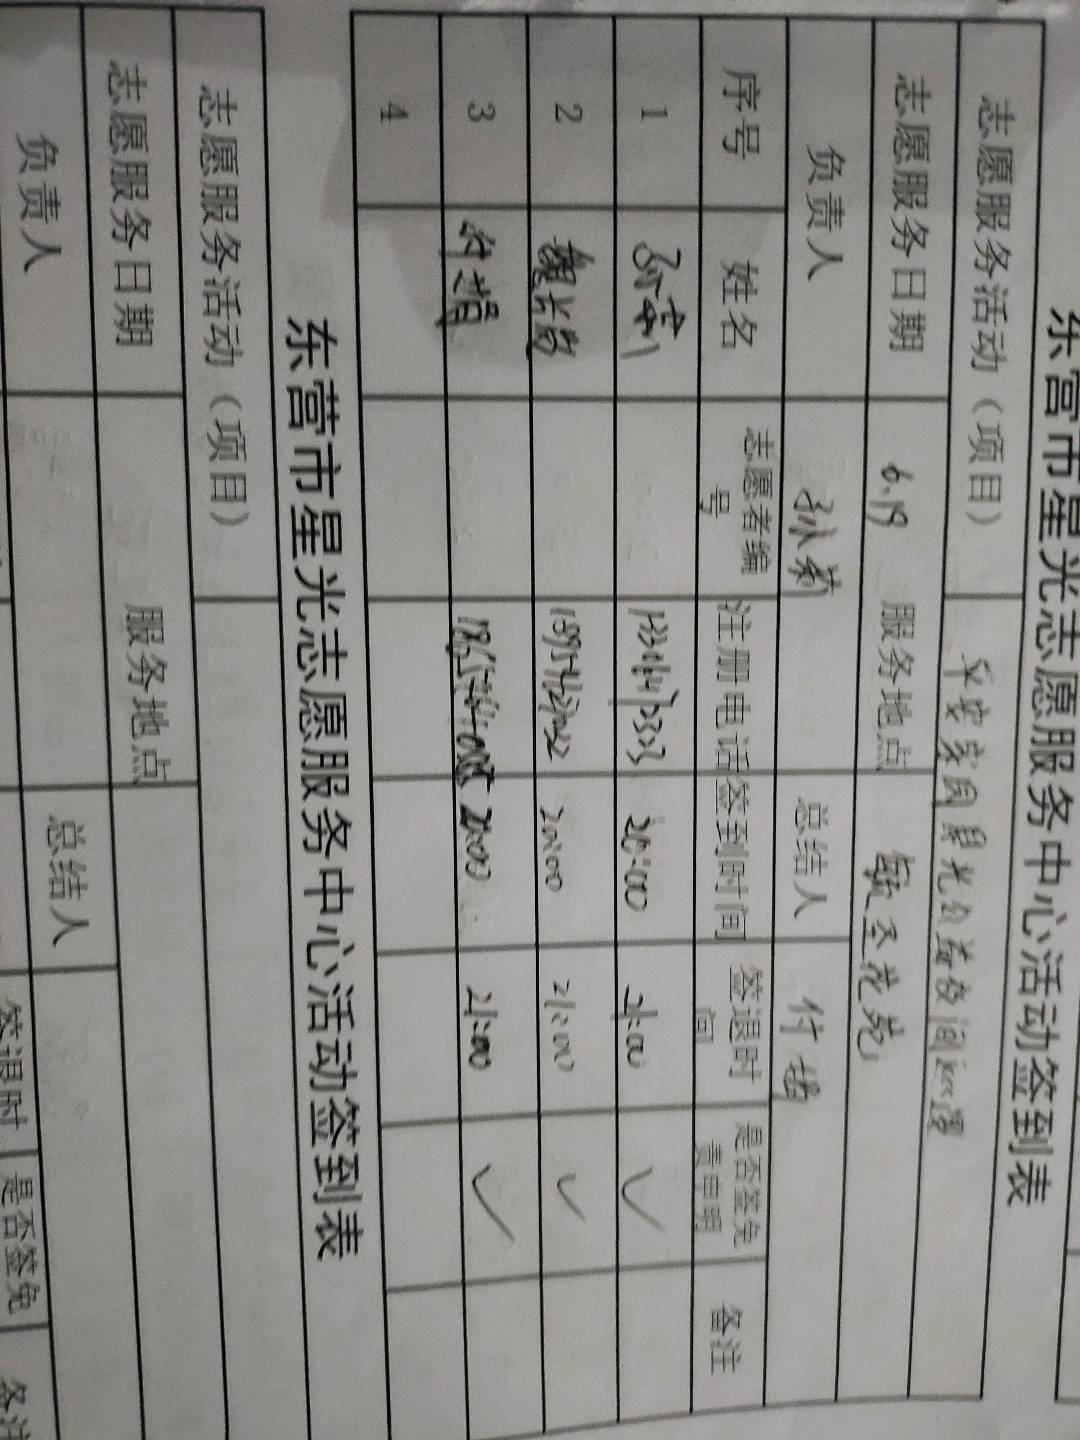 东营市星光志愿服务中心活动签到表
志愿服务活动（项目） 平安家园星光公益夜间巡逻
志愿服务日期 6.19 服务地点 花苑
负责人 孙 总结人 付娟
序号 姓名 志愿者编号 注册电话 签到时间 签退时间 是否签免责申明 备注
1 20:00 21:00 ✓
2 20:00 21:00 ✓
3 付娟 20:00 21:00 ✓
4
东营市星光志愿服务中心活动签到表
志愿服务活动（项目）
志愿服务日期 服务地点
负责人 总结人
签退时 是否签免 备注